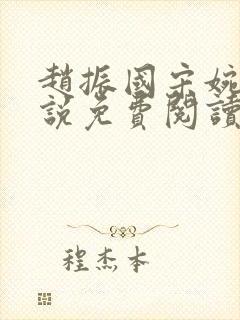 趙振國宋婉
說免費閱讀
程杰本